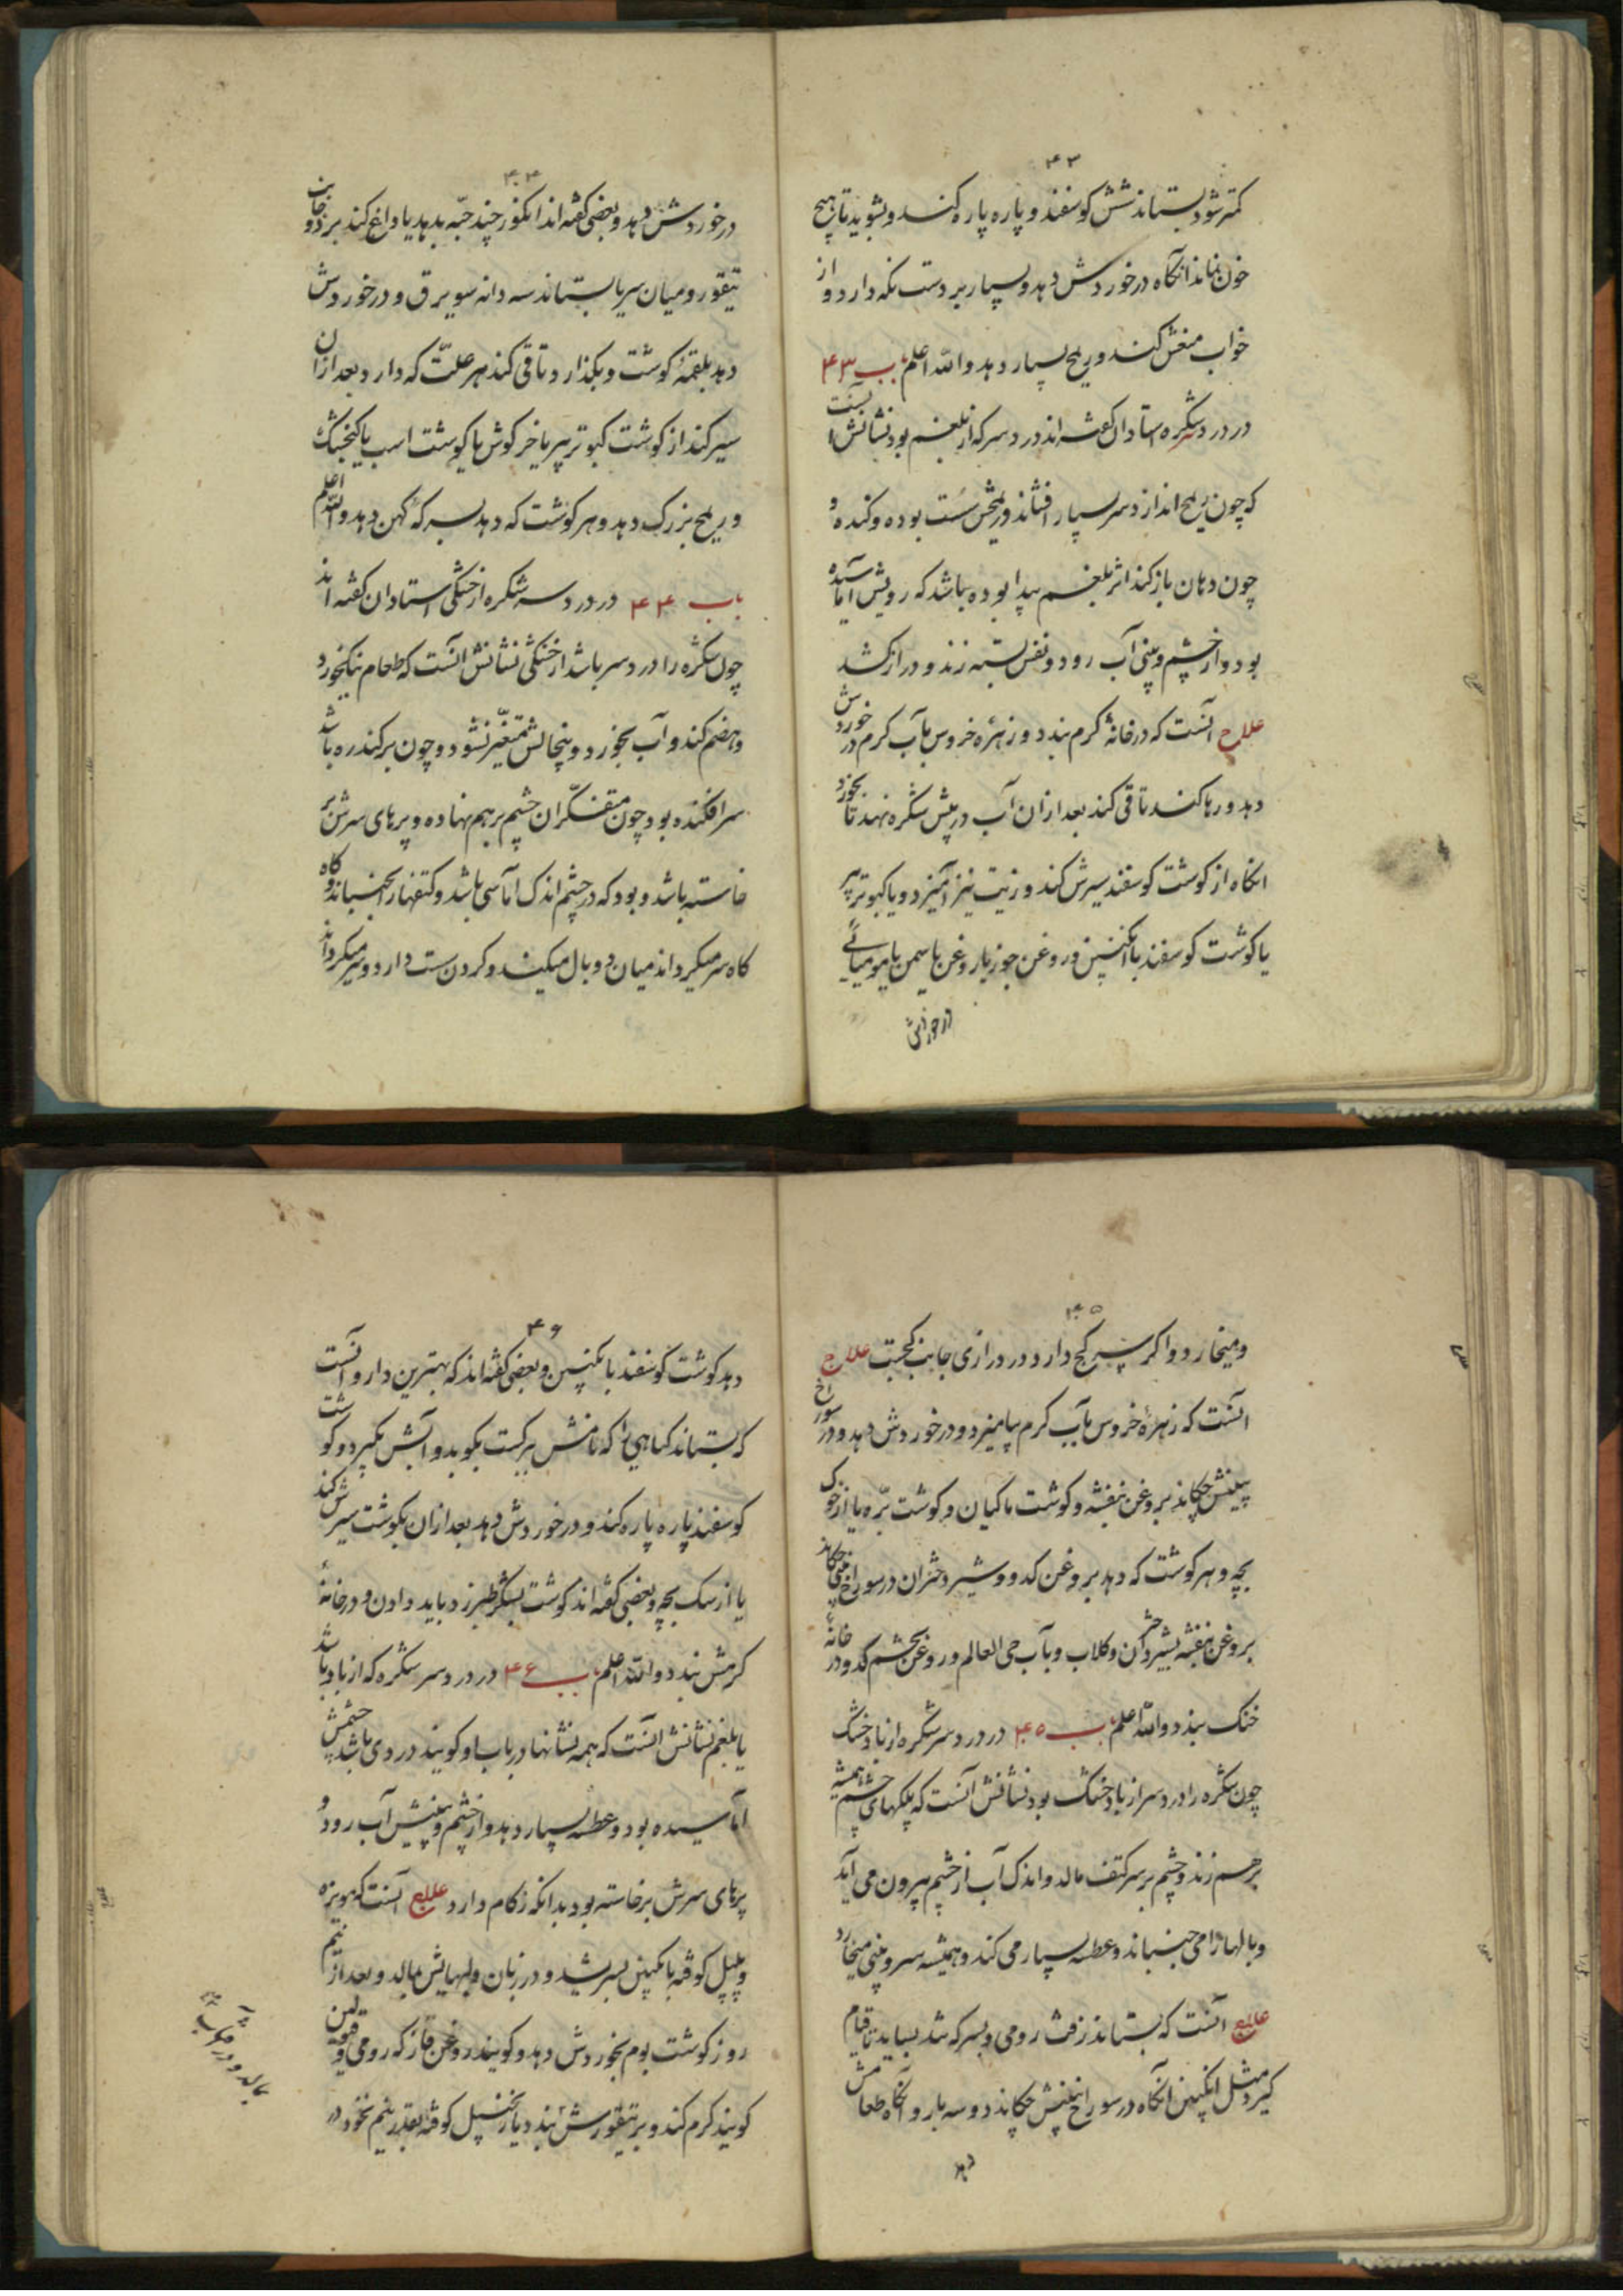 ۴۳
کمتر شود بستاند شش کوسفند و پاره پاره کند و بشوید تا هیچ
خون نماند انکاه در خوردش دهد و بسیار بر دست نکه دارد و از
خواب منعش کند و ریمح بسیار دهد والله اعلم باب ۴۳
در درد سر شکره استادان کفته اند درد سر که از بلغم بود نشانش انست
که چون ریمح اندازد سر بسیار افشاند و ریمحش سست بوده و کنده و
چون دهان باز کند اثر بلغم پیدا بوده باشد که رویش آماسیده
بود و از چشم و بینی آب رود و نفس بسته زند و دراز کشد
علاج آنست که در خانهٔ کرم بندد و زهرهٔ خروس بآب کرم در خوردش
دهد و رها کند تا قی کند بعد ازان آب در پیش شکره نهد تا بخورد
انکاه از کوشت کوسفند سیرش کند و زیت نیز آمیزد و یا کبوتر پیر
یا کوشت کوسفند با انکبین و روغن جوز یا روغن یاسمن یا مومیائی
در خوردش
۴۴
در خوردش دهد و بعضی کفته اند انکور چند حبّه بدهد یا داغ کند بر دو جانب
تیقور و میان سر یا بستاند سه دانه سویرق و در خوردش
دهد بلقمهٔ کوشت و بکذارد تا قی کند هر علّت که دارد بعد ازان
سیر کند از کوشت کبوتر پیر یا خرکوش یا کوشت اسب یا کنجشک
و ریمح بزرک دهد و هر کوشت که دهد بسرکهٔ کهن دهد والله اعلم
باب ۴۴ در درد سر شکره از خشکی استادان کفته اند
چون شکره را درد سر باشد از خشکی نشانش آنست که طعام نیک خورد
و هضم کند و آب بخورد و پیخالش متغیّر نشود و چون برکندره باشد
سر افکنده بود چون متفکّران چشم بر هم نهاده و پرهای سرش بر
خاسته باشد و بود که در چشم اندک آماسی باشد و کتفها را بجنباند و کاه
کاه سر میکرداند میان دو بال میکند و کردن سست دارد و سر میکرداند
۴۵
و میخارد و اکر سر کج دارد و در درازی جانب کجست علاج
آنست که زهرهٔ خروس بآب کرم بیامیزد و در خوردش دهد و در سوراخ
بینیش چکاند بروغن بنفشه و کوشت ماکیان و کوشت برّه یا از خوک
بچه و هر کوشت که دهد بروغن کدو و شیر دختران در سوراخ بینی چکاند
بروغن بنفشه بشیر دختران و کلاب و بآب حی العالم و روغن تخم کدو و در خانهٔ
خنک بندد والله اعلم باب ۴۵ در درد سر شکره از باد خشک
چون شکره را درد سر از باد خشک بود نشانش آنست که پلکهای چشم همیشه
بر هم زند و چشم بر سر کتف مالد و اندک آب از چشم بیرون می آید
و بالها را می جنباند و عطسه بسیار می کند و همیشه سر و بینی میخارد
علاج آنست که بستاند زفت رومی و بسرکه تند بساید تا قیام
کیرد مثل انکبین انکاه در سوراخ بینیش چکاند دو سه بار و آنکاه طعامش
دهد
۴۶
دهد کوشت کوسفند با نکبین و بعضی کفته اند که بهترین دارو آنست
که بستاند کیاهی را که نامش برکست بکوبد و آبش بکیرد و کوشت
کوسفند پاره پاره کند و در خوردش دهد بعد ازان بکوشت سیرش کند
یا از سک بچه و بعضی کفته اند کوشت بشکر طبرزد باید دادن و در خانهٔ
کرمش بندد والله اعلم باب ۴۶ در درد سر شکره که از باد باشد
یا بلغم نشانش آنست که همه نشانها درباب او کویند در وی باشد چشمش
آماسیده بود و عطسه بسیار دهد و از چشم و بینیش آب رود و
پرهای سرش برخاسته بود بدانکه زکام دارد علاج آنست که مویزه
و پلپل کوفته بانکبین بسریشد و در زبان و لبهایش مالد و بعد از نیم
روز کوشت بوم بخوردش دهد و کویند روغن قاز که رومی قوقلین
کویند کرم کند و بر تیقورش بندد یا زنجبیل کوفته بقدر نیم نخود در